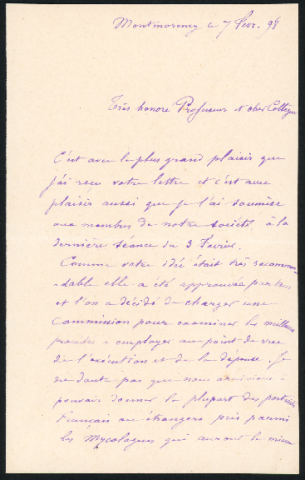 Montmorency le 7 févr. 98
Très honoré Professeur et cher Collègue
C'est avec le plus grand plaisir que
j'ai reçu votre lettre et c'est avec
plaisir aussi que je l'ai soumise
aux membres de notre Société à la
dernière séance du 3 Février.
Comme votre idée était très recomman-
dable elle a été approuvée par tous
et l'on a décidé de charger une
Commission pour examiner les meilleurs
procédés à employer au point de vue
de l'exécution et de la dépense. Je
ne doute pas que nous arrivions à
pouvoir donner la plupart des portraits
Français ou étrangers pris parmi
les Mycologues qui auront le mieux